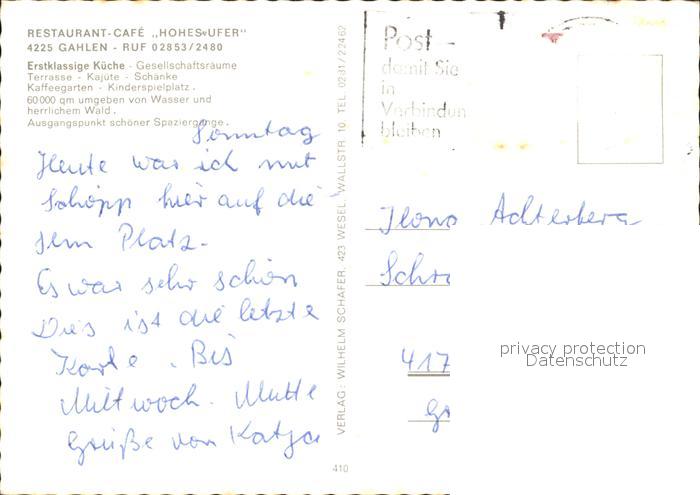 RESTAURANT-CAFÉ „HOHES UFER"
4225 GAHLEN - RUF 02853/2480
Erstklassige Küche - Gesellschaftsräume
Terrasse - Kajüte - Schänke
Kaffeegarten - Kinderspielplatz.
60000 qm umgeben von Wasser und
herrlichem Wald.
Ausgangspunkt schöner Spaziergänge.
Sonntag
Heute war ich mit
Schöpp hier auf die
sem Platz.
Es war sehr schön
Dies ist die letzte
Karte. Bis
Mittwoch. Mutte
Grüße von Katja
VERLAG: WILHELM SCHÄFER, 423 WESEL, WALLSTR 10 TEL. 0281/22462
410
Post-
damit Sie
in
Verbindun
bleiben
Ilona Achterberg
Schr
417
privacy protection
Datenschutz